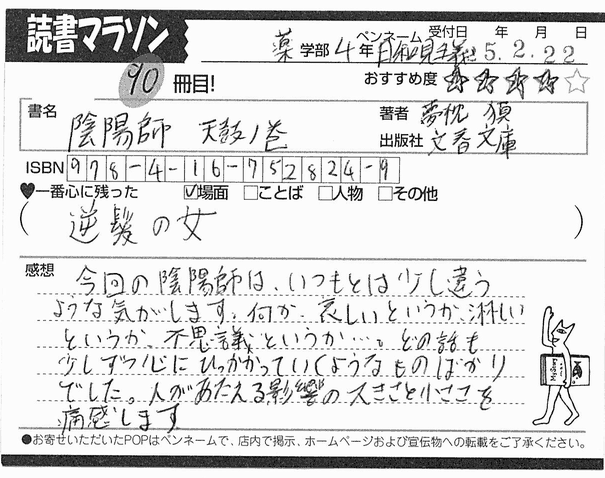 読書マラソン
ペンネーム 受付日 年 月 日
薬 学部 4年 日和見主義 5.2.22
90 冊目!
おすすめ度 ★★★★☆
書名 陰陽師 天鼓ノ巻
著者 夢枕 獏
出版社 文春文庫
ISBN 978-4-16-752824-9
♥一番心に残った ☑場面 □ことば □人物 □その他
(逆髪の女)
感想
今回の陰陽師は、いつもとは少し違う
ような気がします。何か、哀しいというか、淋しい
というか、不思議というか…。どの話も
少しずつ心にひっかかっていくようなものばかり
でした。人があたえる影響の大きさと小ささを
痛感します
●お寄せいただいたPOPはペンネームで、店内で掲示、ホームページおよび宣伝物への転載をご了承ください。